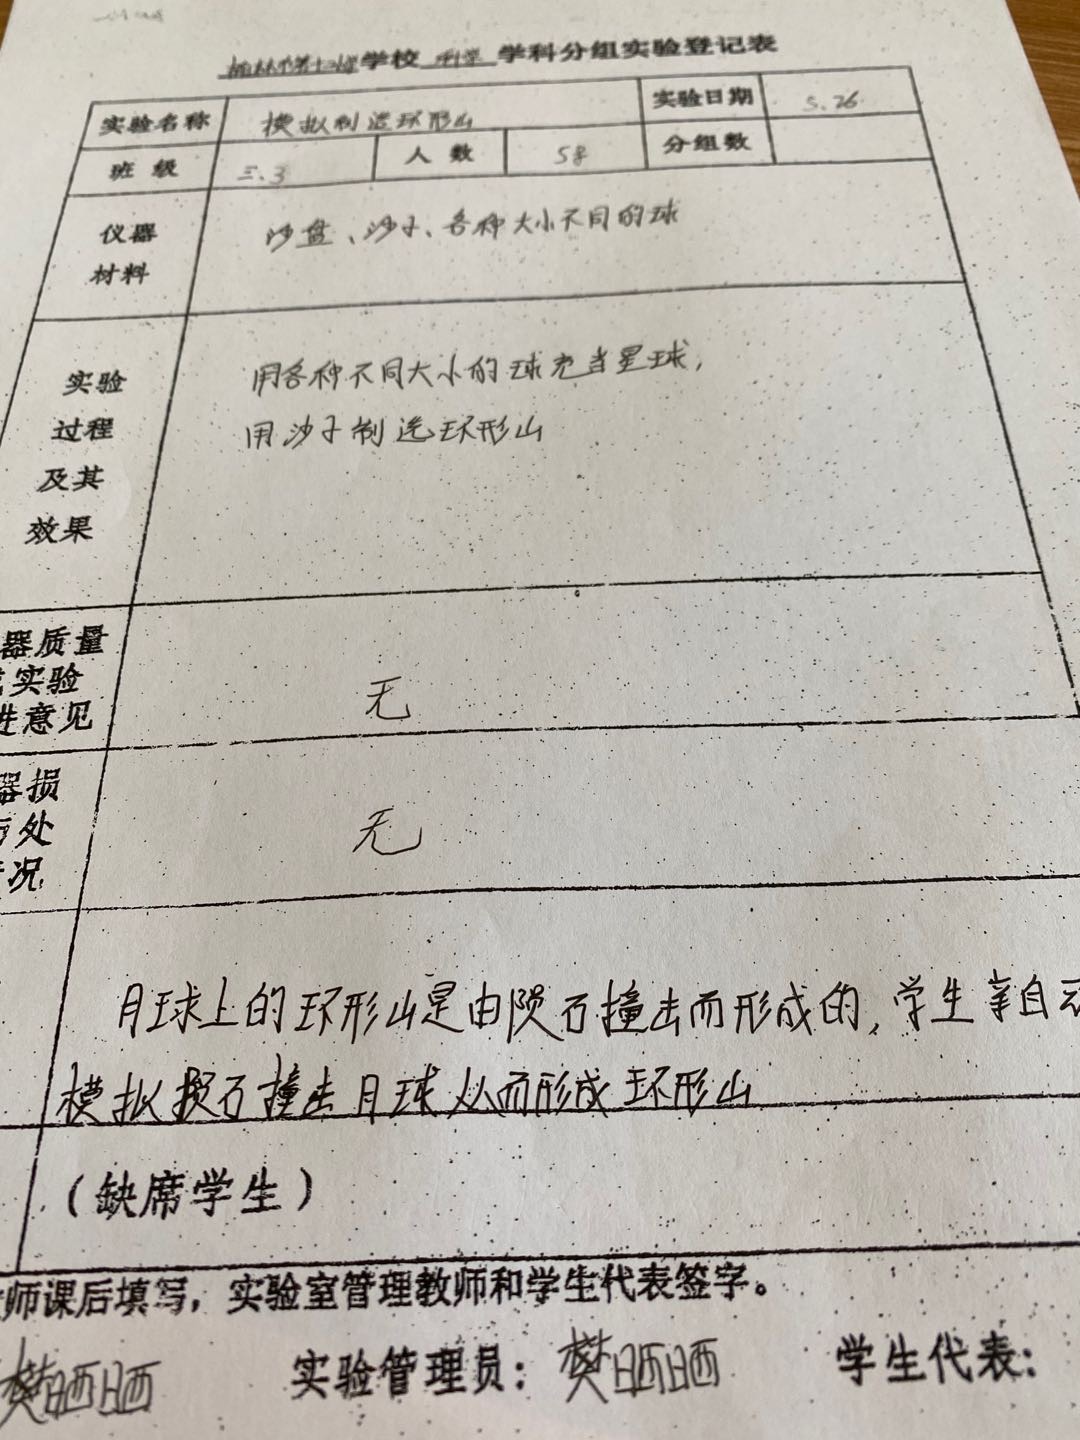 学校 科学 学科分组实验登记表
实验名称 模拟制造环形山 实验日期 5.26
班级 三.3 人数 58 分组数
仪器
材料
沙盘、沙子、各种大小不同的球
实验
过程
及其
效果
用各种不同大小的球充当星球,
用沙子制造环形山
器质量
实验
进意见
无
器损
与处
情况
无
月球上的环形山是由陨石撞击而形成的,学生亲自动
模拟损石撞击月球从而形成环形山
(缺席学生)
师课后填写,实验室管理教师和学生代表签字。
樊晒晒 实验管理员:樊晒晒 学生代表: